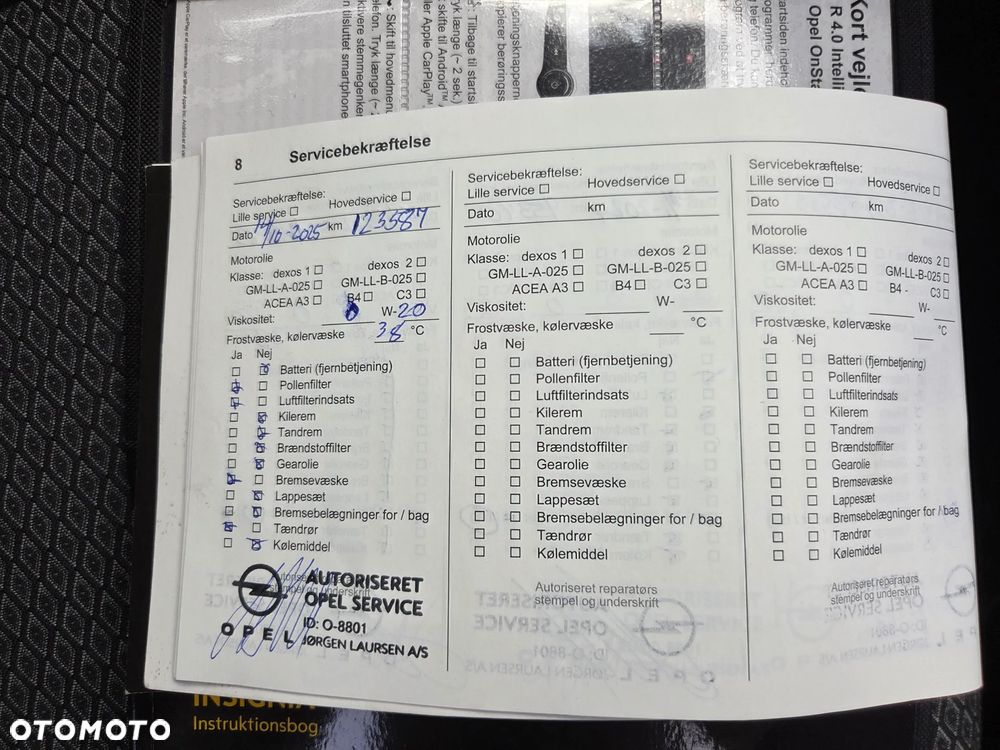 Kort vejle
R 4.0 Intelli
Opel OnSta
8 Servicebekræftelse
Servicebekræftelse:
Lille service ☐ Hovedservice ☐
Dato 14/10-2025 km 123587
Motorolie
Klasse: dexos 1 ☐ dexos 2 ☐
GM-LL-A-025 ☐ GM-LL-B-025 ☐
ACEA A3 ☐ B4 ☐ C3 ☐
Viskositet: 0 W-20
Frostvæske, kølervæske 38 °C
Ja Nej
Batteri (fjernbetjening)
Pollenfilter
Luftfilterindsats
Kilerem
Tandrem
Brændstoffilter
Gearolie
Bremsevæske
Lappesæt
Bremsebelægninger for / bag
Tændrør
Kølemiddel
AUTORISERET
OPEL SERVICE
ID: O-8801
OPEL JØRGEN LAURSEN A/S
Servicebekræftelse:
Lille service ☐ Hovedservice ☐
Dato km
Motorolie
Klasse: dexos 1 ☐ dexos 2 ☐
GM-LL-A-025 ☐ GM-LL-B-025 ☐
ACEA A3 ☐ B4 ☐ C3 ☐
Viskositet: W-
Frostvæske, kølervæske °C
Ja Nej
☐ ☐ Batteri (fjernbetjening)
☐ ☐ Pollenfilter
☐ ☐ Luftfilterindsats
☐ ☐ Kilerem
☐ ☐ Tandrem
☐ ☐ Brændstoffilter
☐ ☐ Gearolie
☐ ☐ Bremsevæske
☐ ☐ Lappesæt
☐ ☐ Bremsebelægninger for / bag
☐ ☐ Tændrør
☐ ☐ Kølemiddel
Autoriseret reparatørs
stempel og underskrift
Servicebekræftelse:
Lille service ☐ Hovedservice ☐
Dato km
Motorolie
Klasse: dexos 1 ☐ dexos 2 ☐
GM-LL-A-025 ☐ GM-LL-B-025 ☐
ACEA A3 ☐ B4 - C3 ☐
Viskositet: W-
Frostvæske, kølervæske °C
Ja Nej
☐ ☐ Batteri (fjernbetjening)
☐ ☐ Pollenfilter
☐ ☐ Luftfilterindsats
☐ ☐ Kilerem
☐ ☐ Tandrem
☐ ☐ Brændstoffilter
☐ ☐ Gearolie
☐ ☐ Bremsevæske
☐ ☐ Lappesæt
☐ ☐ Bremsebelægninger for / bag
☐ ☐ Tændrør
☐ ☐ Kølemiddel
Autoriseret reparatørs
stempel og underskrift
INSIGNIA
Instruktionsbog
OTOMOTO